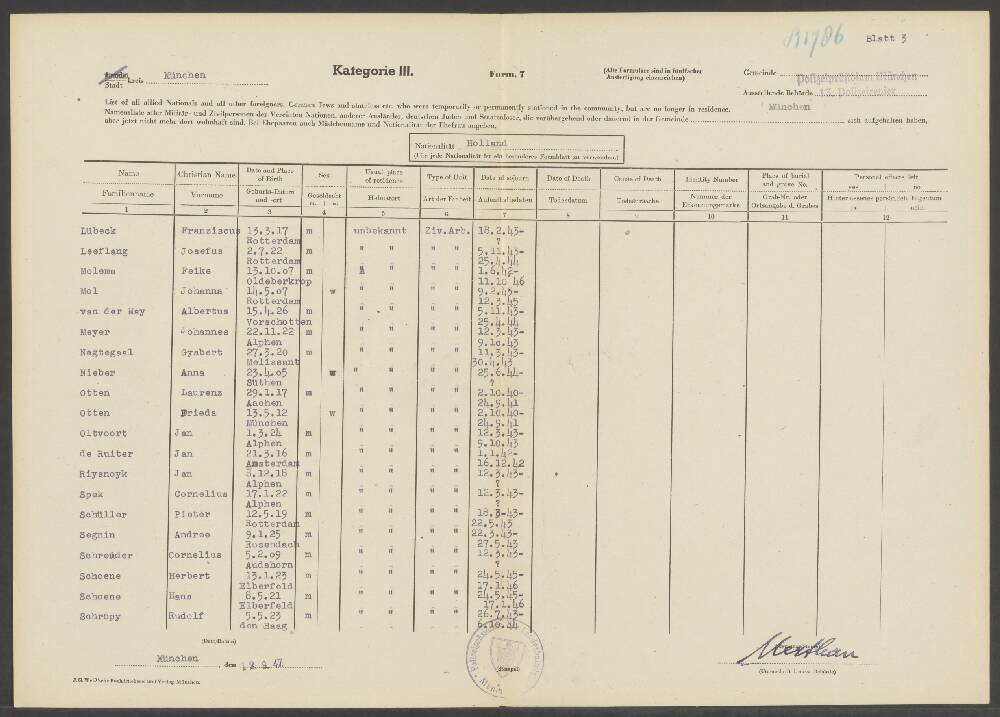 R1786
Blatt 3
Stadt Kreis München
Kategorie III.
Form. 7
(Alle Formulare sind in fünffacher
Ausfertigung einzureichen)
Gemeinde Polizeipräsidium München
Ausstellende Behörde 13. Polizeirevier
List of all allied Nationals and all other foreigners, German Jews and stateless etc. who were temporarily or permanently stationed in the community, but are no longer in residence. München
Namensliste aller Militär- und Zivilpersonen der Vereinten Nationen, anderer Ausländer, deutschen Juden und Staatenlose, die vorübergehend oder dauernd in der Gemeinde sich aufgehalten haben,
aber jetzt nicht mehr dort wohnhaft sind. Bei Ehepaaren auch Mädchenname und Nationalität der Ehefrau angeben.
Nationalität Holland
(Für jede Nationalität ist ein besonderes Formblatt zu verwenden)
Name Christian Name Date and Place of Birth Sex Usual place of residence Type of Unit Date of sojourn Date of Death Cause of Death Identity Number Place of burial and grave No. Personal effects left yes no
Familienname Vorname Geburts-Datum und -ort Geschlecht m. w. Heimatort Art der Einheit Aufenthaltsdaten Todesdatum Todesursache Nummer der Erkennungsmarke Grab-Nr. oder Ortsangabe d. Grabes Hinterlassenes persönlich. Eigentum ja nein
1 2 3 4 5 6 7 8 9 10 11 12
Lübeck Franziscus 13.3.17 m unbekannt Ziv.Arb. 18.2.43-
Rotterdam ?
Leeflang Josefus 2.7.22 m " " " " 5.11.43-
Rotterdam 25.4.44
Molema Feike 13.10.07 m " " " " 1.6.42-
Oldeberkrop 11.10 46
Mol Johanna 14.5.07 w " " " " 9.2.45-
Rotterdam 12.3.45
van der Mey Albertus 15.4.26 m " " " " 5.11.43-
Vorschotten 25.4.44
Meyer Johannes 22.11.22 m " " " " 12.3.43-
Alphen 9.10.43
Nagtegael Gysbert 27.3.20 m " " " " 11.3.43-
Melissant 30.4.43
Nieber Anna 23.4.05 w " " " " 25.6.44-
Süthen ?
Otten Laurenz 29.1.17 m " " " " 2.10.40-
Aachen 24.9.41
Otten Frieda 13.5.12 w " " " " 2.10.40-
München 24.9.41
Oltvoort Jan 1.3.24 m " " " " 12.3.43-
Alphen 9.10.43
de Ruiter Jan 21.3.16 m " " " " 1.1.42-
Amsterdam 16.12.42
Riysnoyk Jan 8.12.18 m " " " " 12.3.43-
Alphen ?
Spek Cornelius 17.1.22 m " " " " 12.3.43-
Alphen ?
Schüller Pieter 12.5.19 m " " " " 18.3-43-
Rotterdam 22.5.43
Segnin Andree 9.1.25 m " " " " 22.3.43-
Rosendach 27.5.43
Schreuder Cornelius 5.2.09 m " " " " 12.3.43-
Audshorn ?
Schoene Herbert 13.1.23 m " " " " 24.5.45-
Elberfeld 17.1.46
Schoene Hans 8.5.21 m " " " " 24.5.45-
Elberfeld 17.1.46
Schrupy Rudolf 5.5.23 m " " " " 26.7.43-
den Haag 6.10.44
München, den
(Stempel)